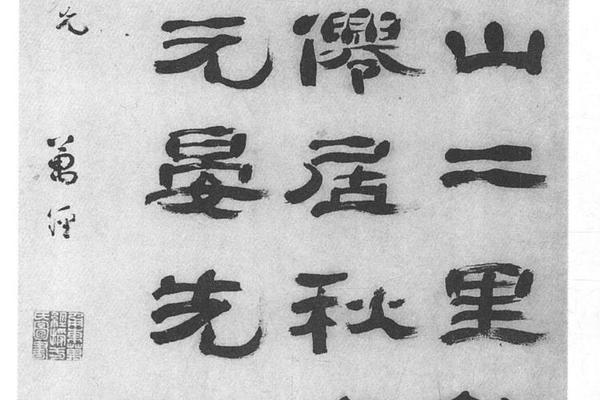 山二里
僊居秋
元晏先
萬經